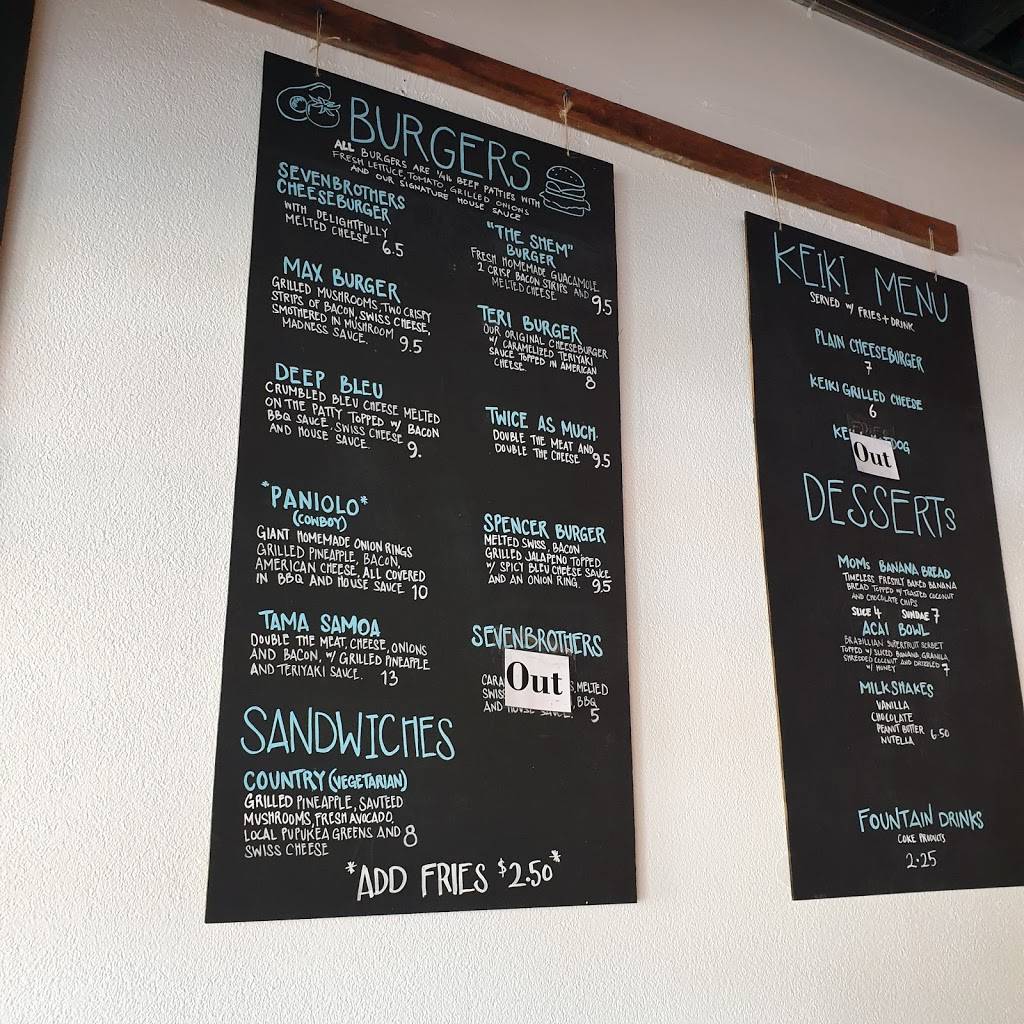 BURGERS
ALL BURGERS ARE 1/4lb BEEF PATTIES WITH
FRESH LETTUCE, TOMATO, GRILLED ONIONS
AND OUR SIGNATURE HOUSE SAUCE
SEVENBROTHERS
CHEESEBURGER
WITH DELIGHTFULLY
MELTED CHEESE 6.5
MAX BURGER
GRILLED MUSHROOMS, TWO CRISPY
STRIPS OF BACON, SWISS CHEESE,
SMOTHERED IN MUSHROOM
MADNESS SAUCE. 9.5
DEEP BLEU
CRUMBLED BLEU CHEESE MELTED
ON THE PATTY TOPPED W/ BACON
BBQ SAUCE, SWISS CHEESE
AND HOUSE SAUCE. 9.
*PANIOLO*
(COWBOY)
GIANT HOMEMADE ONION RINGS
GRILLED PINEAPPLE, BACON,
AMERICAN CHEESE, ALL COVERED
IN BBQ AND HOUSE SAUCE 10
TAMA SAMOA
DOUBLE THE MEAT, CHEESE, ONIONS
AND BACON, W/ GRILLED PINEAPPLE
AND TERIYAKI SAUCE. 13
"THE SHEM"
BURGER
FRESH HOMEMADE GUACAMOLE
2 CRISP BACON STRIPS AND
MELTED CHEESE 9.5
TERI BURGER
OUR ORIGINAL CHEESEBURGER
W/ CARAMELIZED TERIYAKI
SAUCE TOPPED IN AMERICAN
CHEESE. 8
TWICE AS MUCH
DOUBLE THE MEAT AND
DOUBLE THE CHEESE 9.5
SPENCER BURGER
MELTED SWISS, BACON
GRILLED JALAPENO TOPPED
W/ SPICY BLEU CHEESE SAUCE
AND AN ONION RING 9.5
SEVENBROTHERS
Out
MELTED
SWISS BBQ
AND HOUSE SAUCE. 5
SANDWICHES
COUNTRY (VEGETARIAN)
GRILLED PINEAPPLE, SAUTEED
MUSHROOMS, FRESH AVOCADO,
LOCAL PUPUKEA GREENS AND 8
SWISS CHEESE
*ADD FRIES $2.50*
KEIKI MENU
SERVED W/ FRIES + DRINK
PLAIN CHEESEBURGER
7
KEIKI GRILLED CHEESE
6
DOG
Out
DESSERTS
MOMS BANANA BREAD
TIMELESS FRESHLY BAKED BANANA
BREAD TOPPED W/ TOASTED COCONUT
AND CHOCOLATE CHIPS
SLICE 4 SUNDAE 7
ACAI BOWL
BRAZILLIAN SUPERFRUIT SORBET
TOPPED W/ SLICED BANANA, GRANILA
SHREDDED COCONUT AND DRIZZLED
W/ HONEY 7
MILKSHAKES
VANILLA
CHOCOLATE
PEANUT BUTTER
NUTELLA 6.50
FOUNTAIN DRINKS
COKE PRODUCTS
2.25